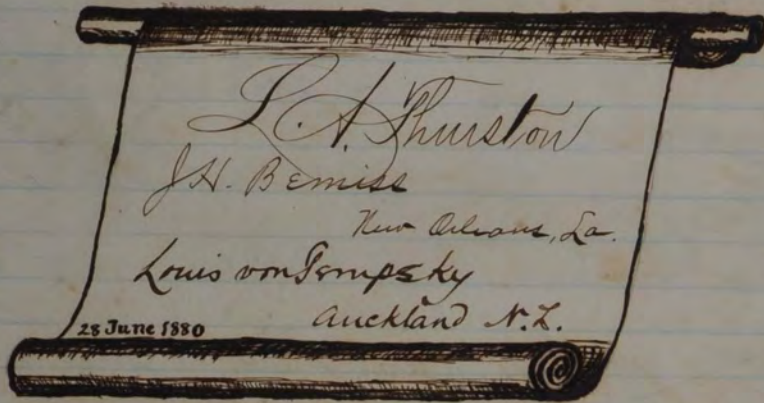 L. A. Thurston
J. H. Bemiss
New Orleans, La.
Louis von Tempsky
Auckland N. Z.
28 June 1880